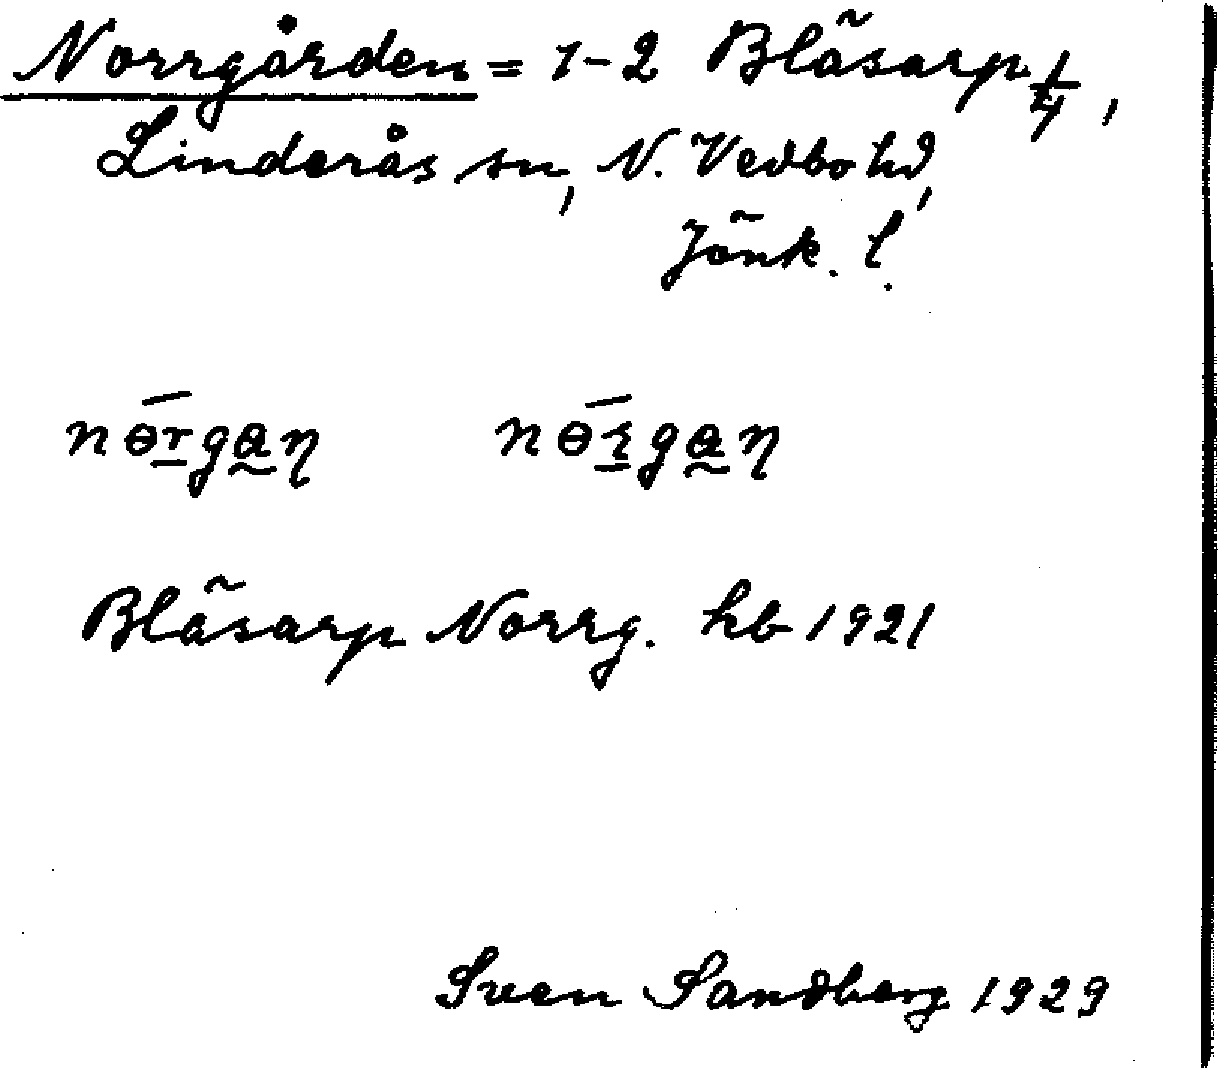 Norrgården = 1-2 Bläsarp 1/4,
Linderås sn, N. Vedbo hd,
Jönk. l.
Bläsarp Norrg. hb 1921
Sven Sandberg 1929